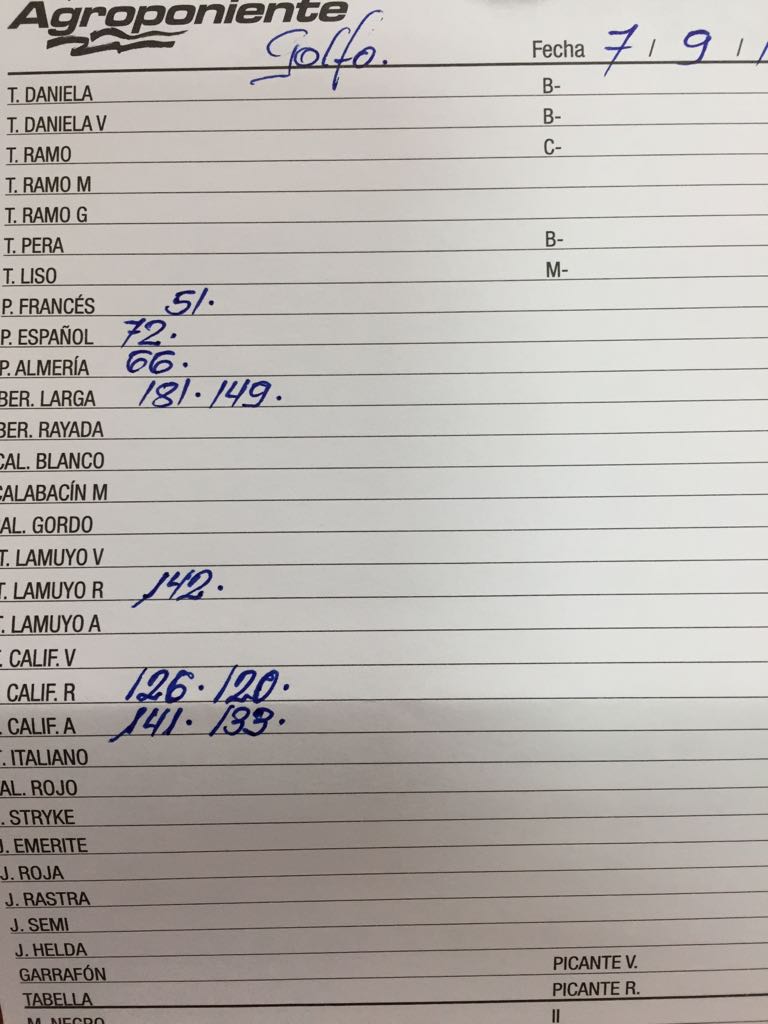 Agroponiente
Golfo. Fecha 7 / 9 /
T. DANIELA B-
T. DANIELA V B-
T. RAMO C-
T. RAMO M
T. RAMO G
T. PERA B-
T. LISO M-
P. FRANCÉS 51.
P. ESPAÑOL 72.
P. ALMERÍA 66.
BER. LARGA 181. 149.
BER. RAYADA
CAL. BLANCO
CALABACÍN M
AL. GORDO
T. LAMUYO V
T. LAMUYO R 142.
T. LAMUYO A
. CALIF. V
CALIF. R 126. 120.
. CALIF. A 141. 133.
T. ITALIANO
AL. ROJO
. STRYKE
J. EMERITE
J. ROJA
J. RASTRA
J. SEMI
J. HELDA
GARRAFÓN PICANTE V.
TABELLA PICANTE R.
M. NEGRO II